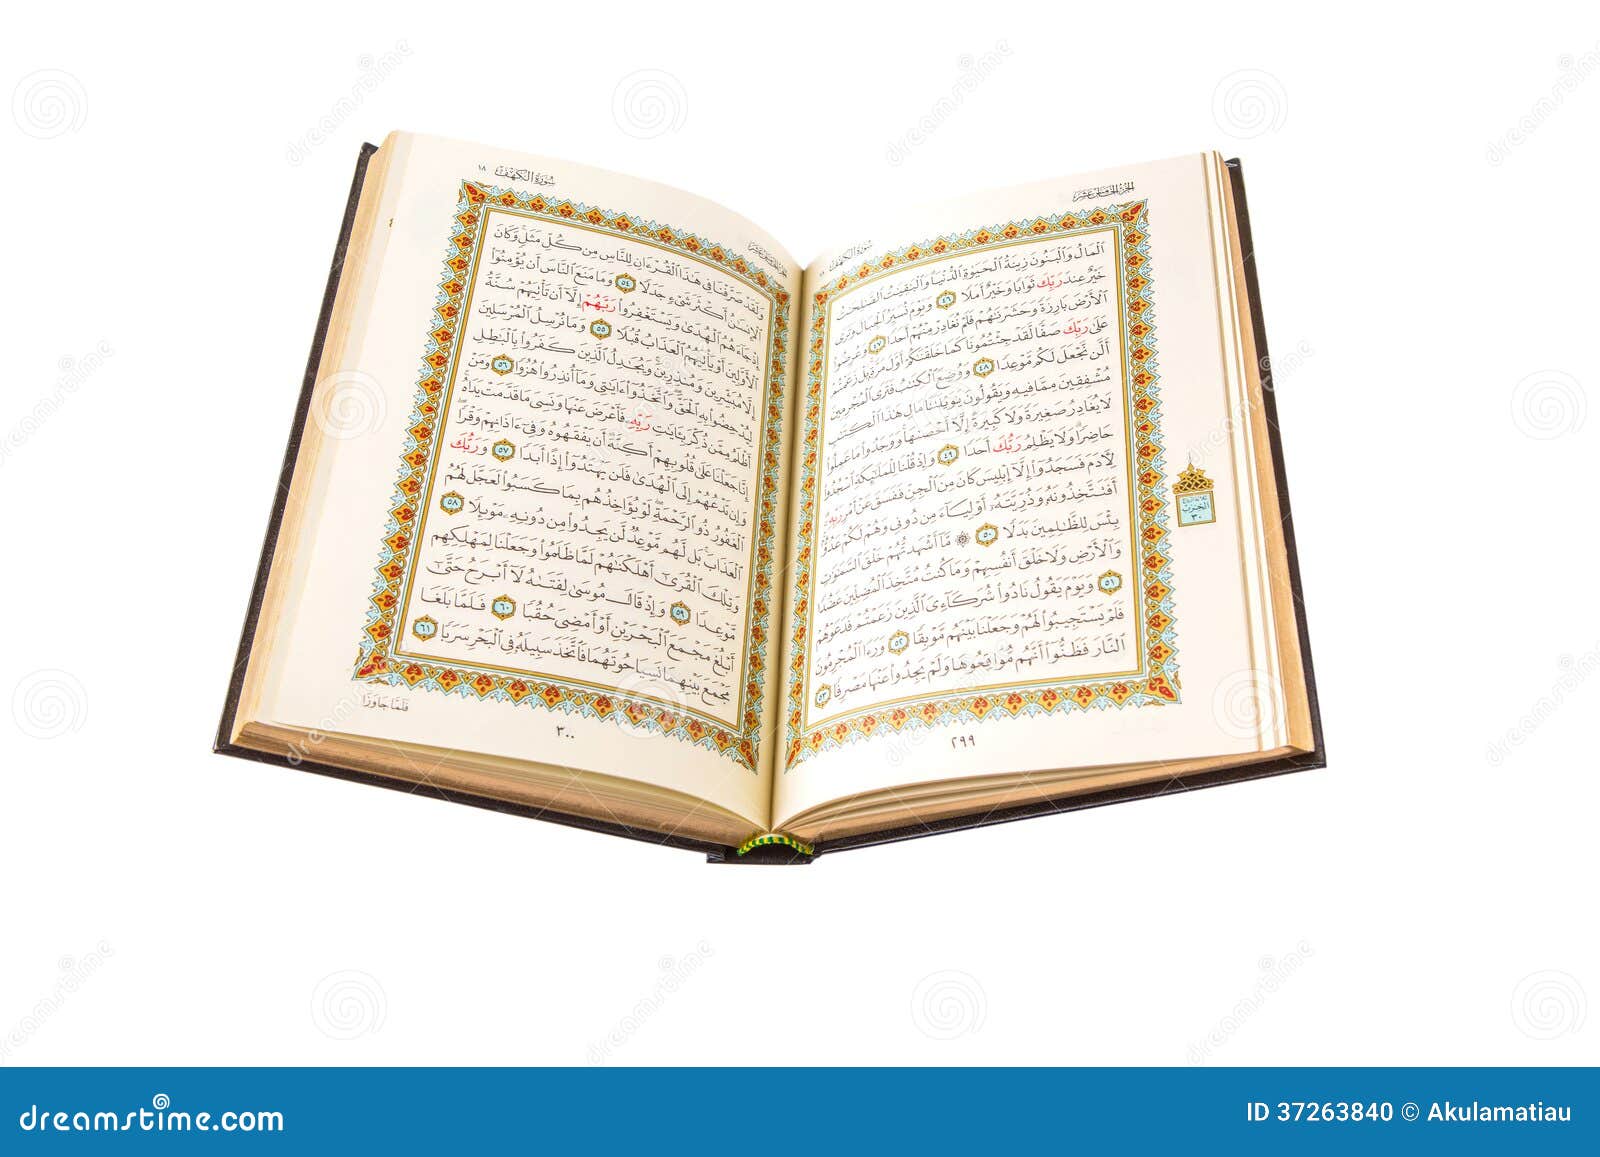 الجزء الخامس عشر
سورة الكهف ١٨
ٱلْمَالُ وَٱلْبَنُونَ زِينَةُ ٱلْحَيَوٰةِ ٱلدُّنْيَا وَٱلْبَٰقِيَٰتُ ٱلصَّٰلِحَٰتُ
خَيْرٌ عِندَ رَبِّكَ ثَوَابًا وَخَيْرٌ أَمَلًا ٤٦ وَيَوْمَ نُسَيِّرُ ٱلْجِبَالَ وَتَرَى
ٱلْأَرْضَ بَارِزَةً وَحَشَرْنَٰهُمْ فَلَمْ نُغَادِرْ مِنْهُمْ أَحَدًا ٤٧ وَعُرِضُوا۟
عَلَىٰ رَبِّكَ صَفًّا لَّقَدْ جِئْتُمُونَا كَمَا خَلَقْنَٰكُمْ أَوَّلَ مَرَّةٍۭ بَلْ زَعَمْتُمْ
أَلَّن نَّجْعَلَ لَكُم مَّوْعِدًا ٤٨ وَوُضِعَ ٱلْكِتَٰبُ فَتَرَى ٱلْمُجْرِمِينَ
مُشْفِقِينَ مِمَّا فِيهِ وَيَقُولُونَ يَٰوَيْلَتَنَا مَالِ هَٰذَا ٱلْكِتَٰبِ
لَا يُغَادِرُ صَغِيرَةً وَلَا كَبِيرَةً إِلَّآ أَحْصَىٰهَا وَوَجَدُوا۟ مَا عَمِلُوا۟
حَاضِرًا وَلَا يَظْلِمُ رَبُّكَ أَحَدًا ٤٩ وَإِذْ قُلْنَا لِلْمَلَٰٓئِكَةِ ٱسْجُدُوا۟
لِءَادَمَ فَسَجَدُوٓا۟ إِلَّآ إِبْلِيسَ كَانَ مِنَ ٱلْجِنِّ فَفَسَقَ عَنْ أَمْرِ رَبِّهِۦٓ
أَفَتَتَّخِذُونَهُۥ وَذُرِّيَّتَهُۥٓ أَوْلِيَآءَ مِن دُونِى وَهُمْ لَكُمْ عَدُوٌّۢ
بِئْسَ لِلظَّٰلِمِينَ بَدَلًا ٥٠ ۞ مَّآ أَشْهَدتُّهُمْ خَلْقَ ٱلسَّمَٰوَٰتِ
وَٱلْأَرْضِ وَلَا خَلْقَ أَنفُسِهِمْ وَمَا كُنتُ مُتَّخِذَ ٱلْمُضِلِّينَ عَضُدًا
٥١ وَيَوْمَ يَقُولُ نَادُوا۟ شُرَكَآءِىَ ٱلَّذِينَ زَعَمْتُمْ فَدَعَوْهُمْ
فَلَمْ يَسْتَجِيبُوا۟ لَهُمْ وَجَعَلْنَا بَيْنَهُم مَّوْبِقًا ٥٢ وَرَءَا ٱلْمُجْرِمُونَ
ٱلنَّارَ فَظَنُّوٓا۟ أَنَّهُم مُّوَاقِعُوهَا وَلَمْ يَجِدُوا۟ عَنْهَا مَصْرِفًا ٥٣
الحزب
٣٠
٢٩٩
سورة الكهف ١٨
الجزء الخامس عشر
وَلَقَدْ صَرَّفْنَا فِى هَٰذَا ٱلْقُرْءَانِ لِلنَّاسِ مِن كُلِّ مَثَلٍ وَكَانَ
ٱلْإِنسَٰنُ أَكْثَرَ شَىْءٍ جَدَلًا ٥٤ وَمَا مَنَعَ ٱلنَّاسَ أَن يُؤْمِنُوٓا۟
إِذْ جَآءَهُمُ ٱلْهُدَىٰ وَيَسْتَغْفِرُوا۟ رَبَّهُمْ إِلَّآ أَن تَأْتِيَهُمْ سُنَّةُ
ٱلْأَوَّلِينَ أَوْ يَأْتِيَهُمُ ٱلْعَذَابُ قُبُلًا ٥٥ وَمَا نُرْسِلُ ٱلْمُرْسَلِينَ
إِلَّا مُبَشِّرِينَ وَمُنذِرِينَ وَيُجَٰدِلُ ٱلَّذِينَ كَفَرُوا۟ بِٱلْبَٰطِلِ
لِيُدْحِضُوا۟ بِهِ ٱلْحَقَّ وَٱتَّخَذُوٓا۟ ءَايَٰتِى وَمَآ أُنذِرُوا۟ هُزُوًا ٥٦ وَمَنْ
أَظْلَمُ مِمَّن ذُكِّرَ بِـَٔايَٰتِ رَبِّهِۦ فَأَعْرَضَ عَنْهَا وَنَسِىَ مَا قَدَّمَتْ يَدَاهُ
إِنَّا جَعَلْنَا عَلَىٰ قُلُوبِهِمْ أَكِنَّةً أَن يَفْقَهُوهُ وَفِىٓ ءَاذَانِهِمْ وَقْرًا
وَإِن تَدْعُهُمْ إِلَى ٱلْهُدَىٰ فَلَن يَهْتَدُوٓا۟ إِذًا أَبَدًا ٥٧ وَرَبُّكَ
ٱلْغَفُورُ ذُو ٱلرَّحْمَةِ لَوْ يُؤَاخِذُهُم بِمَا كَسَبُوا۟ لَعَجَّلَ لَهُمُ
ٱلْعَذَابَ بَل لَّهُم مَّوْعِدٌ لَّن يَجِدُوا۟ مِن دُونِهِۦ مَوْئِلًا ٥٨
وَتِلْكَ ٱلْقُرَىٰٓ أَهْلَكْنَٰهُمْ لَمَّا ظَلَمُوا۟ وَجَعَلْنَا لِمَهْلِكِهِم
مَّوْعِدًا ٥٩ وَإِذْ قَالَ مُوسَىٰ لِفَتَىٰهُ لَآ أَبْرَحُ حَتَّىٰٓ
أَبْلُغَ مَجْمَعَ ٱلْبَحْرَيْنِ أَوْ أَمْضِىَ حُقُبًا ٦٠ فَلَمَّا بَلَغَا
مَجْمَعَ بَيْنِهِمَا نَسِيَا حُوتَهُمَا فَٱتَّخَذَ سَبِيلَهُۥ فِى ٱلْبَحْرِ سَرَبًا ٦١
فَلَمَّا جَاوَزَا
٣٠٠
dreamstime.com
ID 37263840 © Akulamatiau